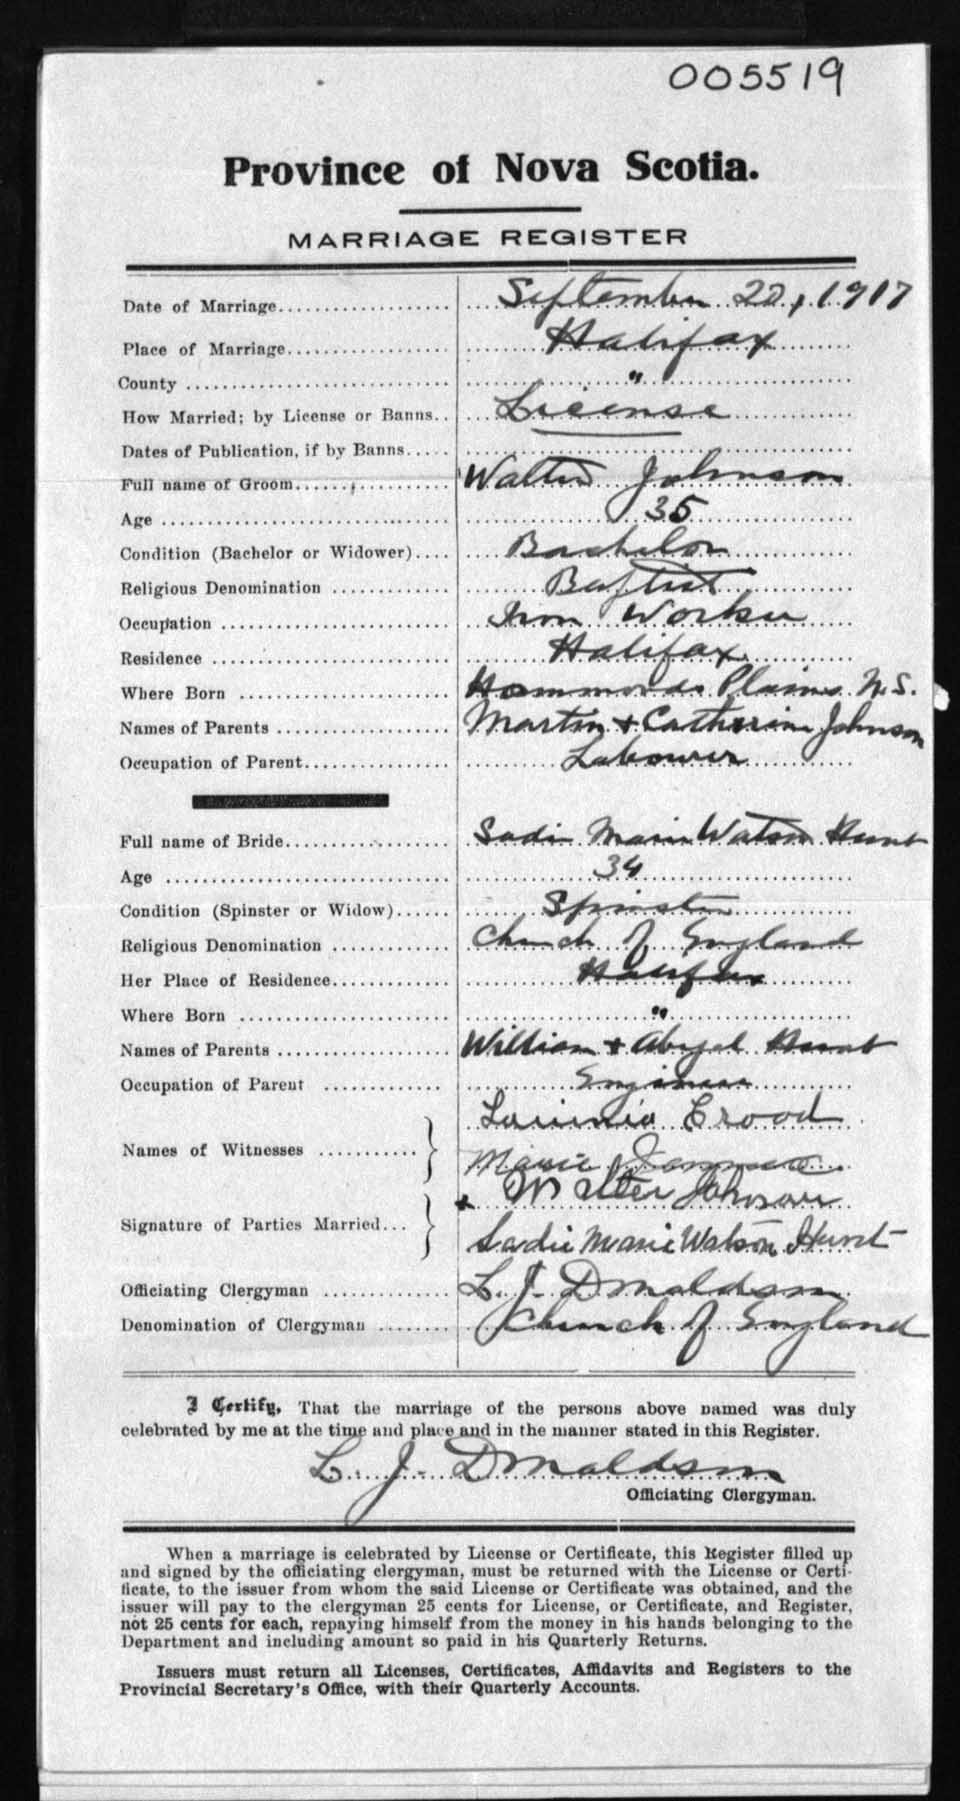 005519
Province of Nova Scotia.
MARRIAGE REGISTER
Date of Marriage September 22, 1917
Place of Marriage Halifax
County "
How Married; by License or Banns License
Dates of Publication, if by Banns
Full name of Groom Walter Johnson
Age 35
Condition (Bachelor or Widower) Bachelor
Religious Denomination Baptist
Occupation Iron Worker
Residence Halifax
Where Born Hammonds Plains N.S.
Names of Parents Martin + Catherine Johnson
Occupation of Parent Labourer
Full name of Bride Sadie Marie Watson Hunt
Age 34
Condition (Spinster or Widow) Spinster
Religious Denomination Church of England
Her Place of Residence Halifax
Where Born "
Names of Parents William + Abigal Hunt
Occupation of Parent Engineer
Names of Witnesses
Marie
Signature of Parties Married x Walter Johnson
Sadie Marie Watson Hunt
Officiating Clergyman L. J. Donaldson
Denomination of Clergyman Church of England
I Certify, That the marriage of the persons above named was duly
celebrated by me at the time and place and in the manner stated in this Register.
L. J. Donaldson
Officiating Clergyman.
When a marriage is celebrated by License or Certificate, this Register filled up
and signed by the officiating clergyman, must be returned with the License or Certi-
ficate, to the issuer from whom the said License or Certificate was obtained, and the
issuer will pay to the clergyman 25 cents for License, or Certificate, and Register,
not 25 cents for each, repaying himself from the money in his hands belonging to the
Department and including amount so paid in his Quarterly Returns.
Issuers must return all Licenses, Certificates, Affidavits and Registers to the
Provincial Secretary's Office, with their Quarterly Accounts.